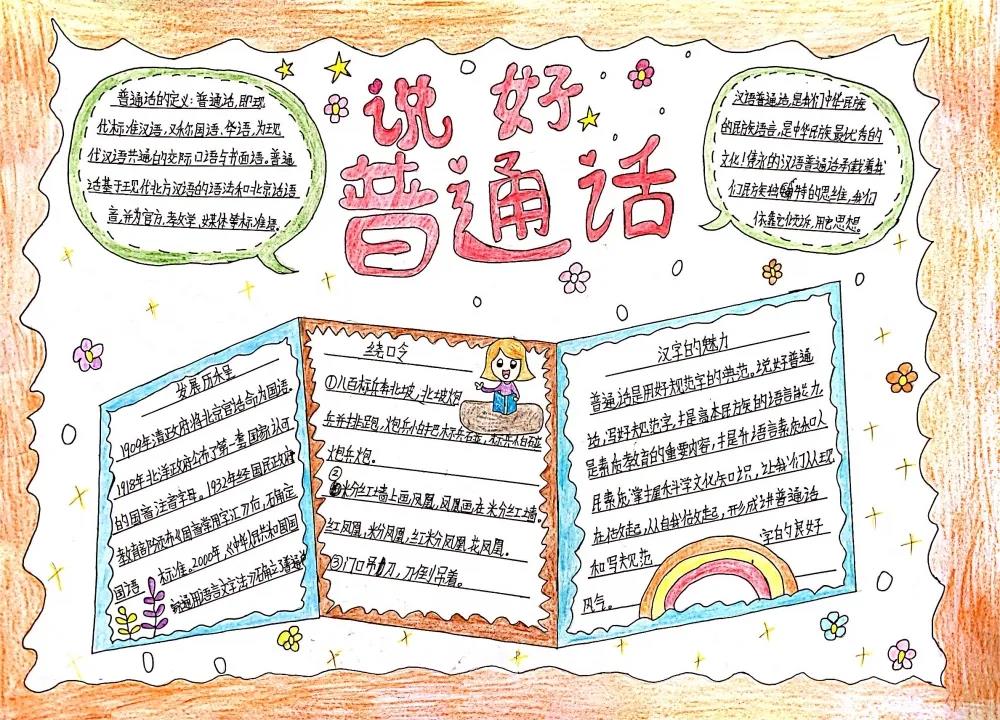 说好
普通话
普通话的定义：普通话，即现
代标准汉语，又称国语、华语，为现
代汉语共通的交际口语与书面语。普通
话基于现代北方汉语的语法和北京话语
音，并为官方，教学，媒体等标准语。
汉语普通话，是我们中华民族
的民族语言，是中华民族最优秀的
文化！伟永的汉语普通话承载着我
们民族独特的思维，我们
依靠它倾诉，用它思想。
发展历程
1909年清政府将北京官话命为国语。
1918年北洋政府公布了第一套国家认可
的国音注音字母。1932年经国民政府
教育部颁布《国音常用字汇》后，确定
国语 标准。2000年《中华人民共和国国
家通用语言文字法》确立普通话
绕口令
①八百标兵奔北坡，北坡炮
兵并排跑，炮兵怕把标兵碰，标兵怕碰
炮兵炮。
②
粉红墙上画凤凰，凤凰画在粉红墙。
红凤凰，粉凤凰，红粉凤凰花凤凰。
③门口吊刀，刀倒吊着。
汉字的魅力
普通话是用好规范字的典范。说好普通
话，写好规范字，是提高本民族的语言能力
是素质教育的重要内容，是提升语言素质和人
民素质，掌握科学文化知识，让我们从现
在做起，从自我做起，形成讲普通话
和写规范 字的良好
风气。